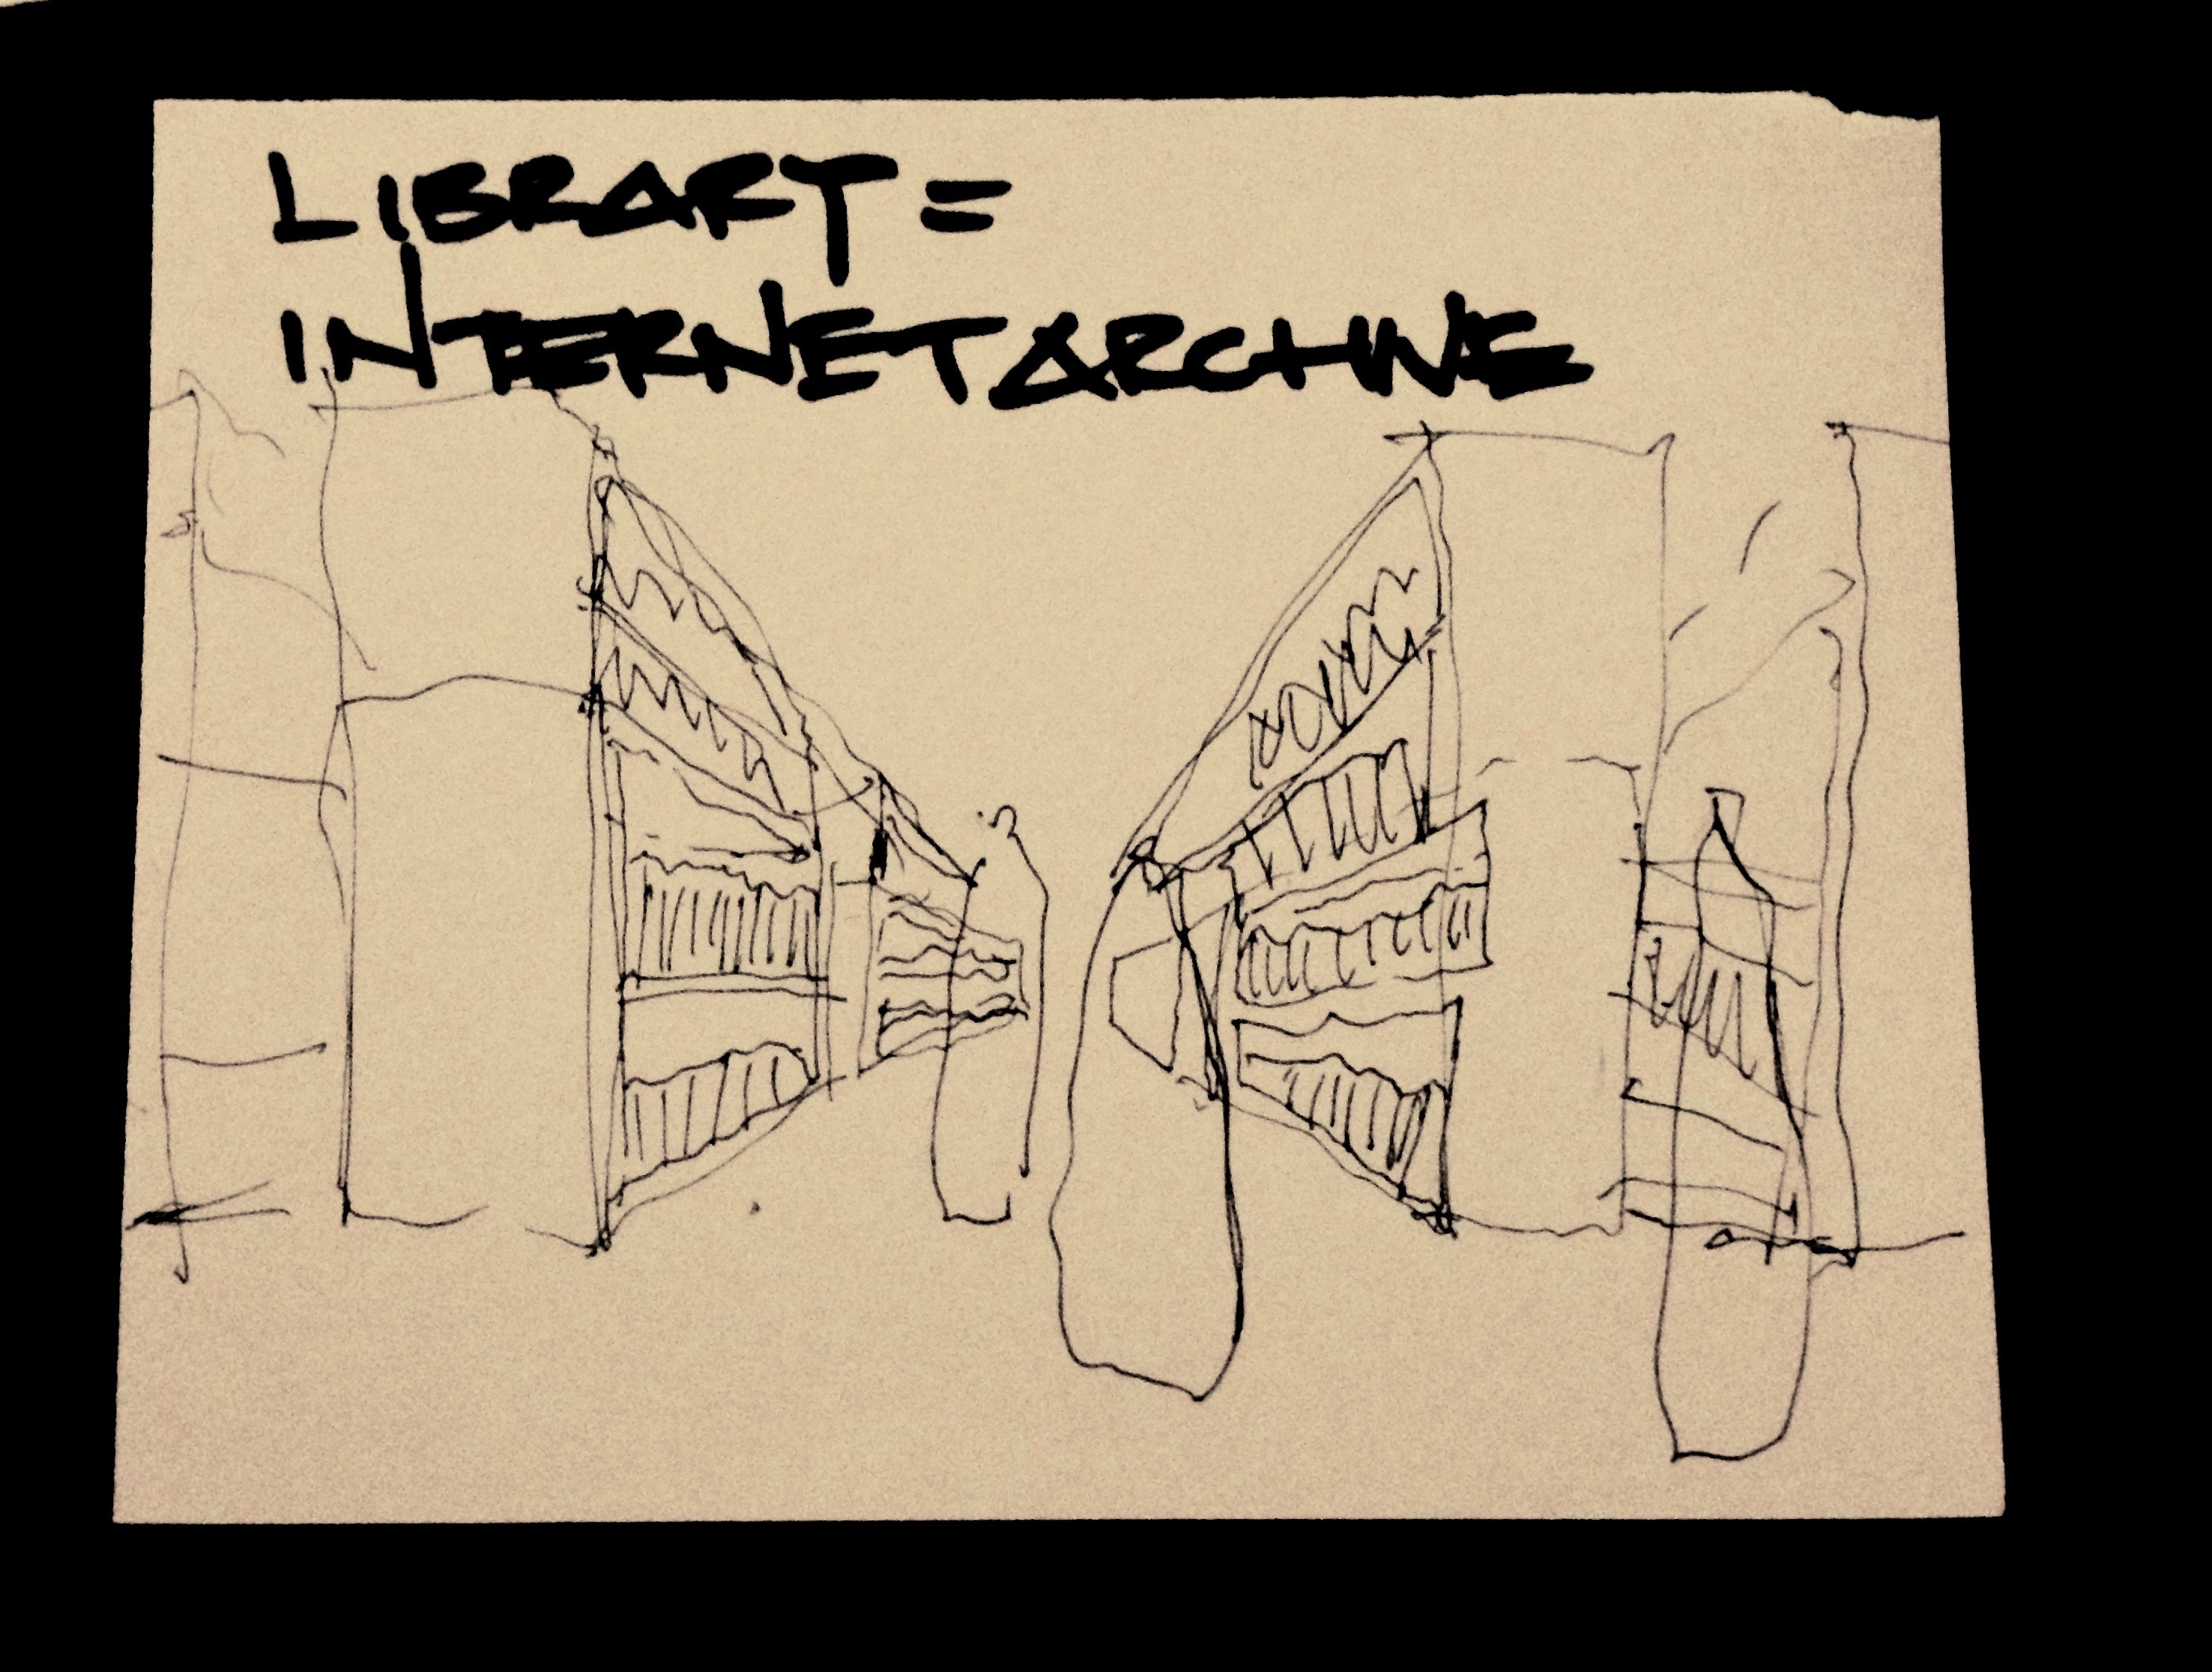 LIBRARY =
INTERNET ARCHIVE